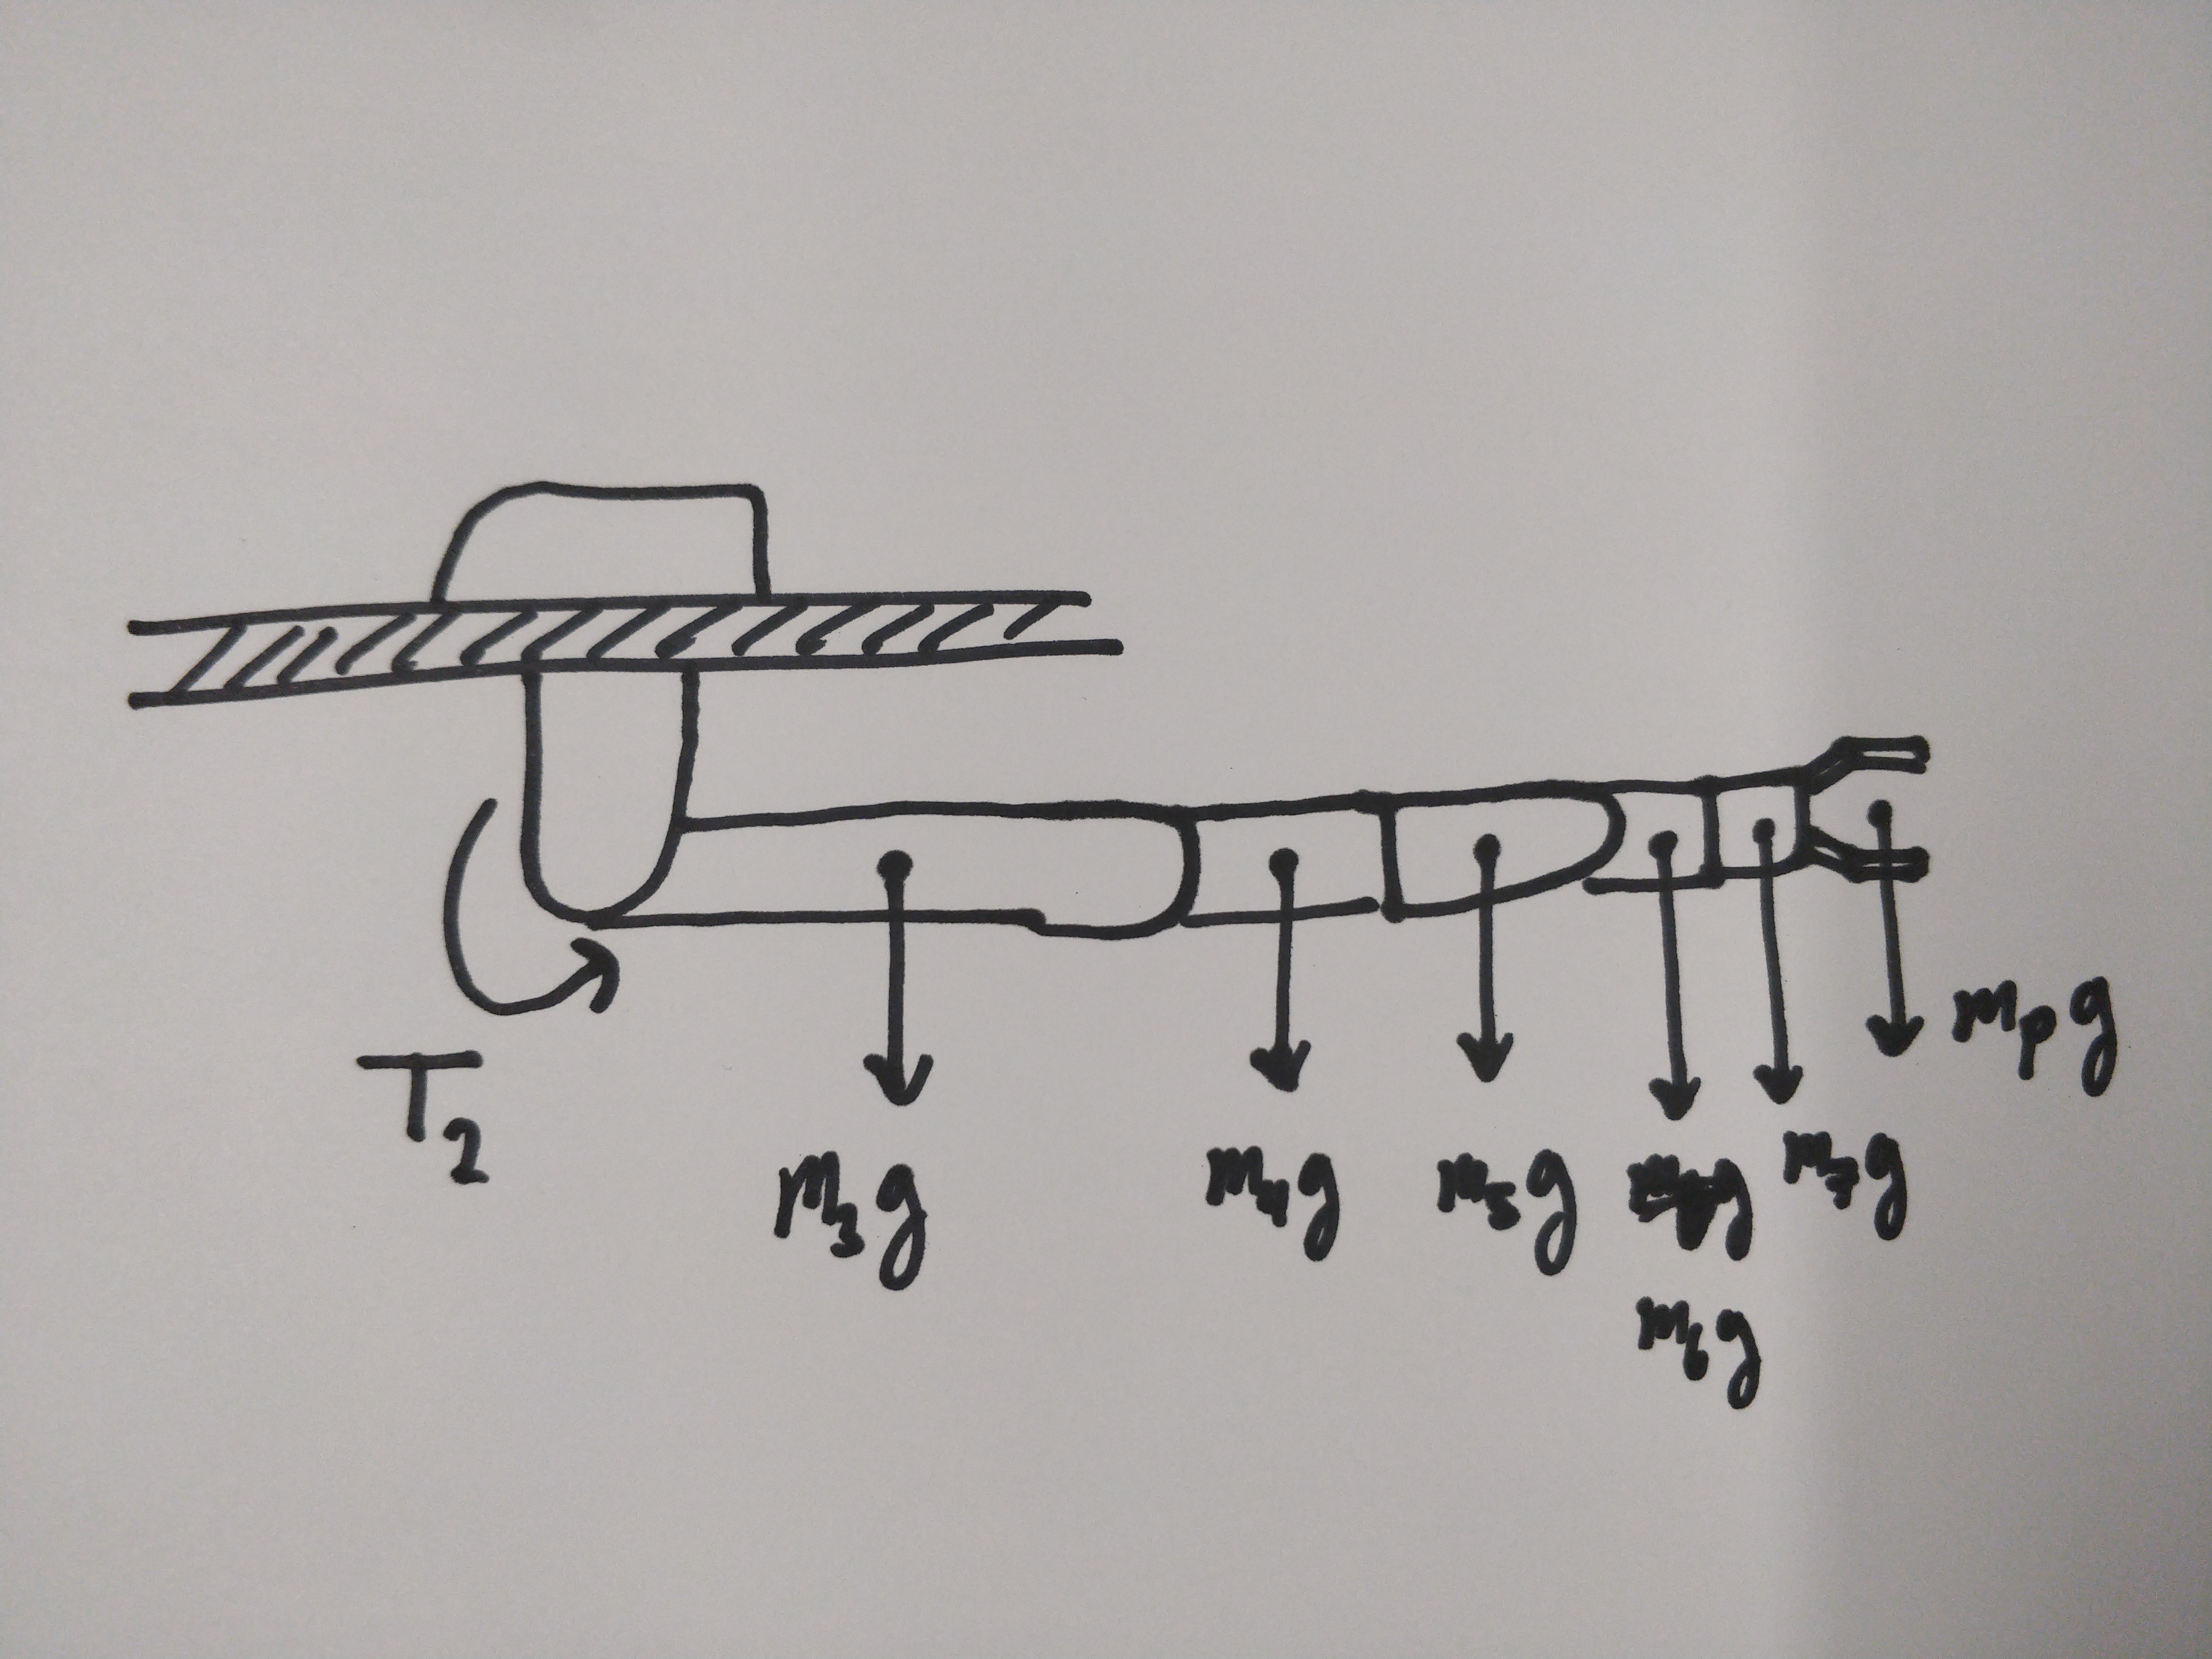 T2
m3g m4g m5g m7g mpg
m6g